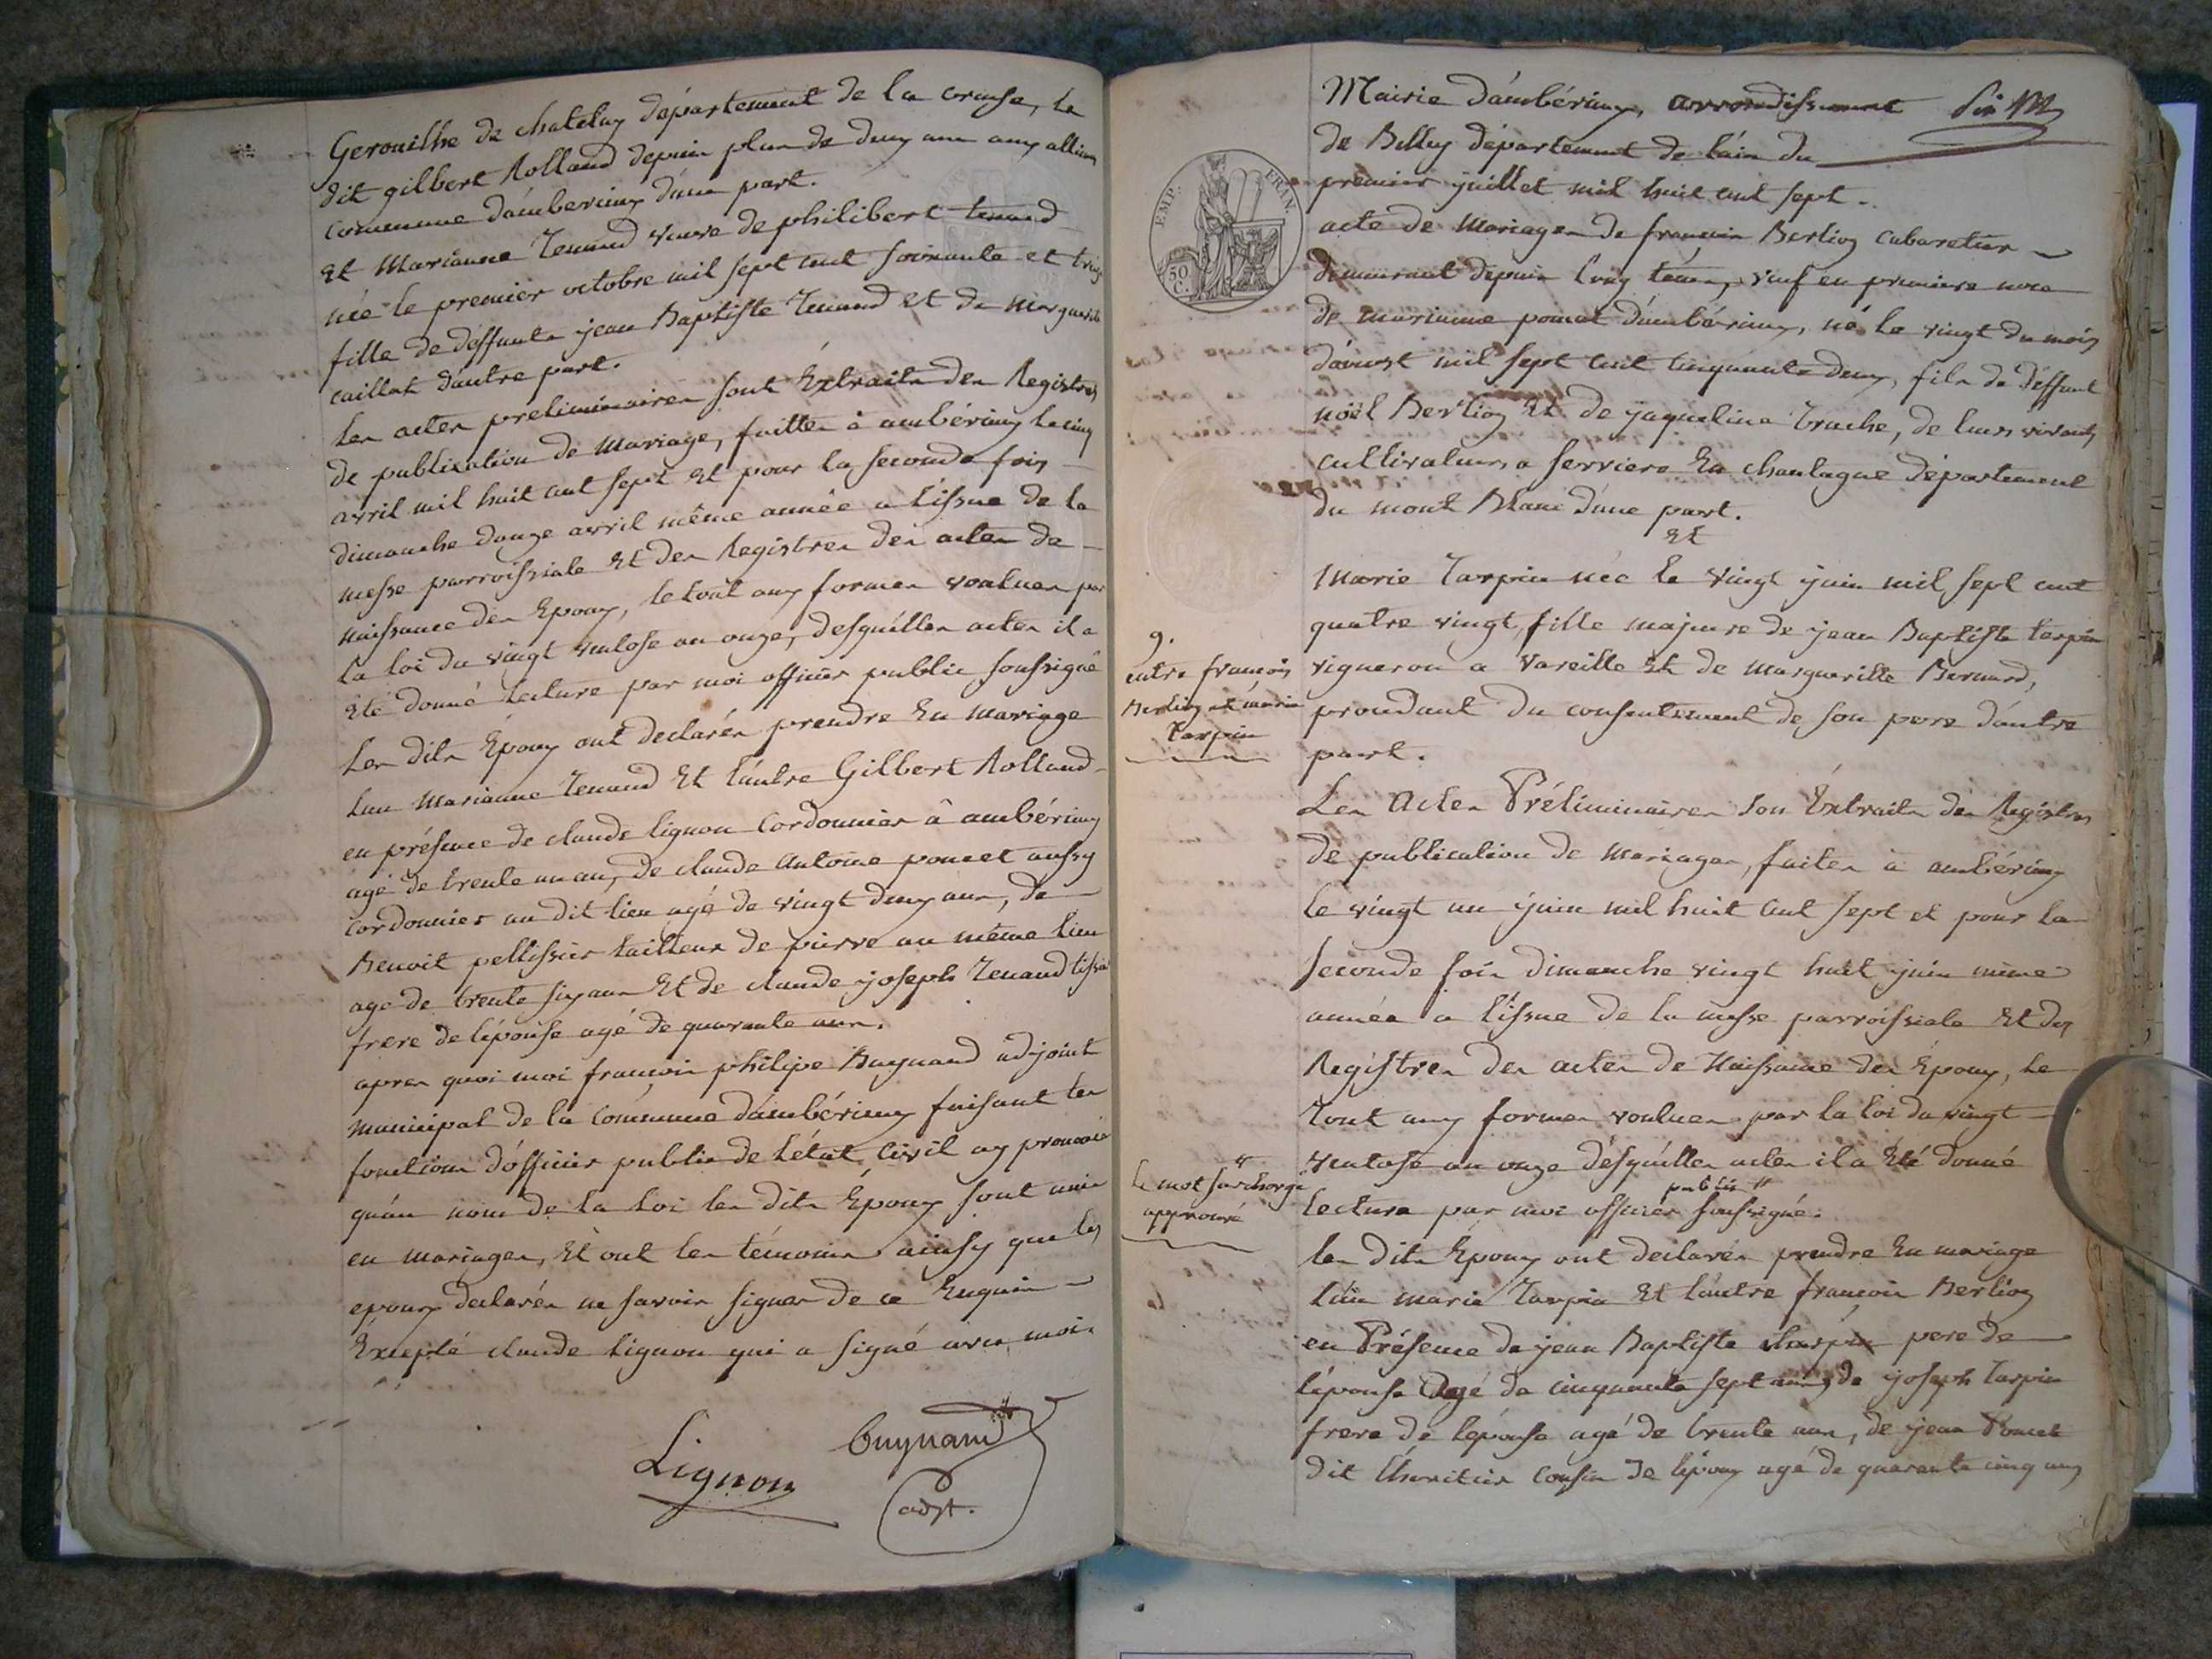 Gerouilhe de chatelay département de la creuse, le
dit gilbert Rolland depuis plus de deux ans aux allimes
commune d'amberieux d'une part.
Et Marianne Tenand veuve de philibert tenand
née le premier octobre mil sept cent soixante et treize
fille de deffunts jean Baptiste Tenand et de Marguerite
caillat d'autre part.
Les actes preliminaires sont Extraits des Registres
de publication de Mariage, faittes à ambérieux le cinq
avril mil huit cent sept Et pour la seconde fois
dimanche douze avril même année a l'issue de la
messe parroissiale Et des Registres des actes de
naissance des Epoux, le tout aux formes voulues par
la loi du vingt ventose an onze, desquelles actes il a
Eté donné lecture par moi officier public soussigné
Les dits Epoux ont declarés prendre En mariage
l'un Marianne Tenand Et l'autre Gilbert Rolland
en présence de claude lignon Cordonnier à ambérieux
agé de trente un an, de claude antoine poncet aussy
Cordonnier au dit lieu agé de vingt deux ans, de
Benoit pellissier tailleur de pierre au même lieu
agé de trente six ans Et de claude joseph Tenand
frere de l'épouse agé de quarante ans.
apres quoi moi francois philipe Buynand adjoint
municipal de la Commune d'ambérieux faisant les
fonctions d'officier public de l'état civil ay prononcé
qu'au nom de la Loi les dits Époux sont unis
en mariages, Et ont les témoins ainsy que les
epoux declarés ne savoir signer de ce Enquis
Excepté claude Lignon qui a signé avec moi.
Lignon Buynand
adjt.
Mairie d'ambérieux, arrondissement
de Belley département de l'ain du
premier juillet mil huit cent sept.
EMP. ERIN.
50 C.
acte de Mariages de francois Berlioz cabaretier
demeurant depuis long tems, veuf en premiere noce
de marianne poncet d'ambérieux, né le vingt du mois
d'avoust mil sept cent cinquante deux, fils de deffunt
noël Berlioz Et de jaqueline Trache, de leurs vivants
cultivateurs a serriere En chautagne département
du mont Blanc d'une part.
Et
Marie Tarpin née le vingt juin mil sept cent
quatre vingt, fille majeure de jean Baptiste tarpin
vigneron a Vareille Et de Margueritte Bernard,
procedant du consentement de son pere d'autre
part.
9.
entre francois
Berlioz et marie
Tarpin
Les Actes Préliminaires son Extraits des Registres
de publication de Mariages, faites à ambérieux
le vingt un juin mil huit cent sept et pour la
seconde fois dimanche vingt huit juin même
année a l'issue de la messe parroissiale Et des
Registres des actes de Naissance des Epoux, le
Tout aux formes voulues par la loi du vingt
ventose an onze desquelles actes il a Eté donné
public
lecture par moi officier soussigné.
le mot surchargé
approuvé
les dits Epoux ont declarés prendre En mariage
l'un marie Tarpin Et l'autre francois Berlioz
en Présence de jean Baptiste tharpin pere de
l'épouse Agé de cinquante sept ans, de joseph Tarpin
frere de l'épouse agé de trente ans, de jean Poncet
dit L'heritier cousin de l'époux agé de quarante cinq ans